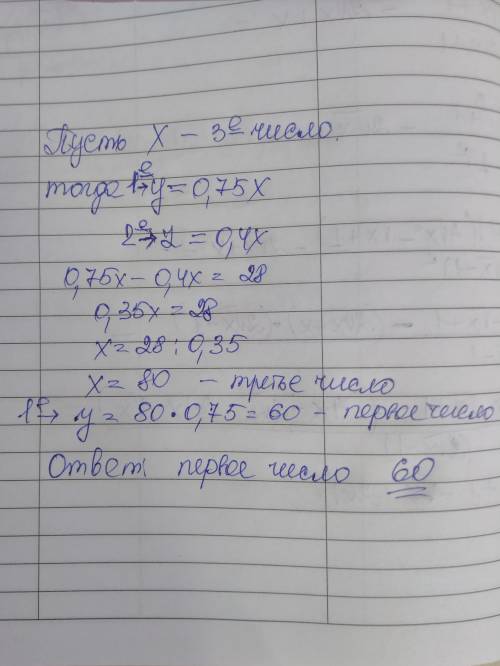 Пусть X – 3е число.
тогда 1е→y = 0,75X
2е→Z = 0,4x
0,75x – 0,4x = 28
0,35x = 28
x = 28 : 0,35
x = 80 – третье число
1е→ y = 80 • 0,75 = 60 – первое число
Ответ: первое число 60